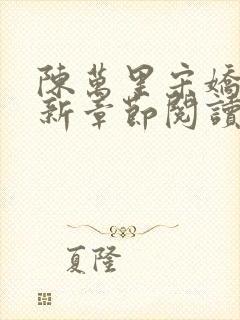 陳萬里宋嬌
新章節閱讀
夏隆